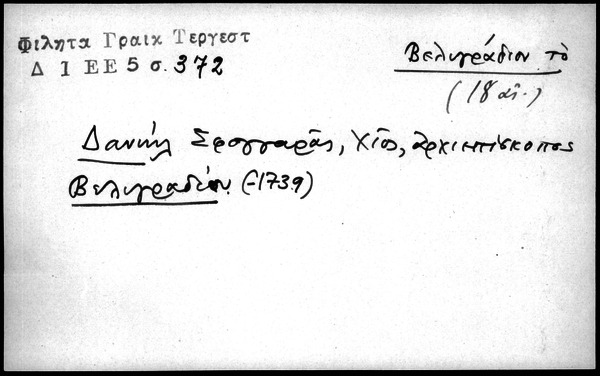 Φιλητα Γραικ Τεργεστ
Δ 1 ΕΕ 5 σ. 372
Βελιγράδιον τὸ
(18 αἰ.)
Δανιὴλ Σφογγαρᾶς, Χῖος, ἀρχιεπίσκοπος
Βελιγραδίου (-1739)